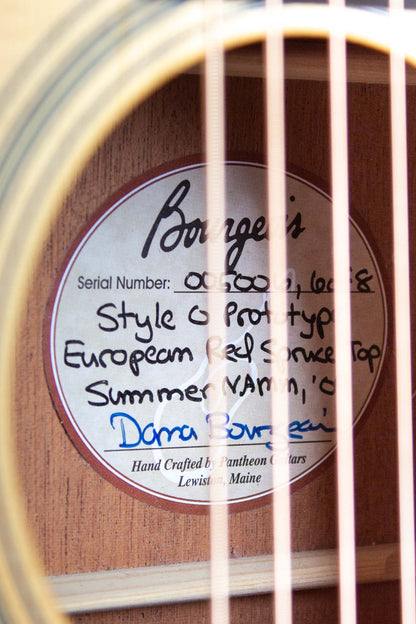 Bourgeois
Serial Number: 005006, 6058
Style O Prototype
European Red Spruce Top
Summer NAMM, '0
Dana Bourgeois
Hand Crafted by Pantheon Guitars
Lewiston, Maine